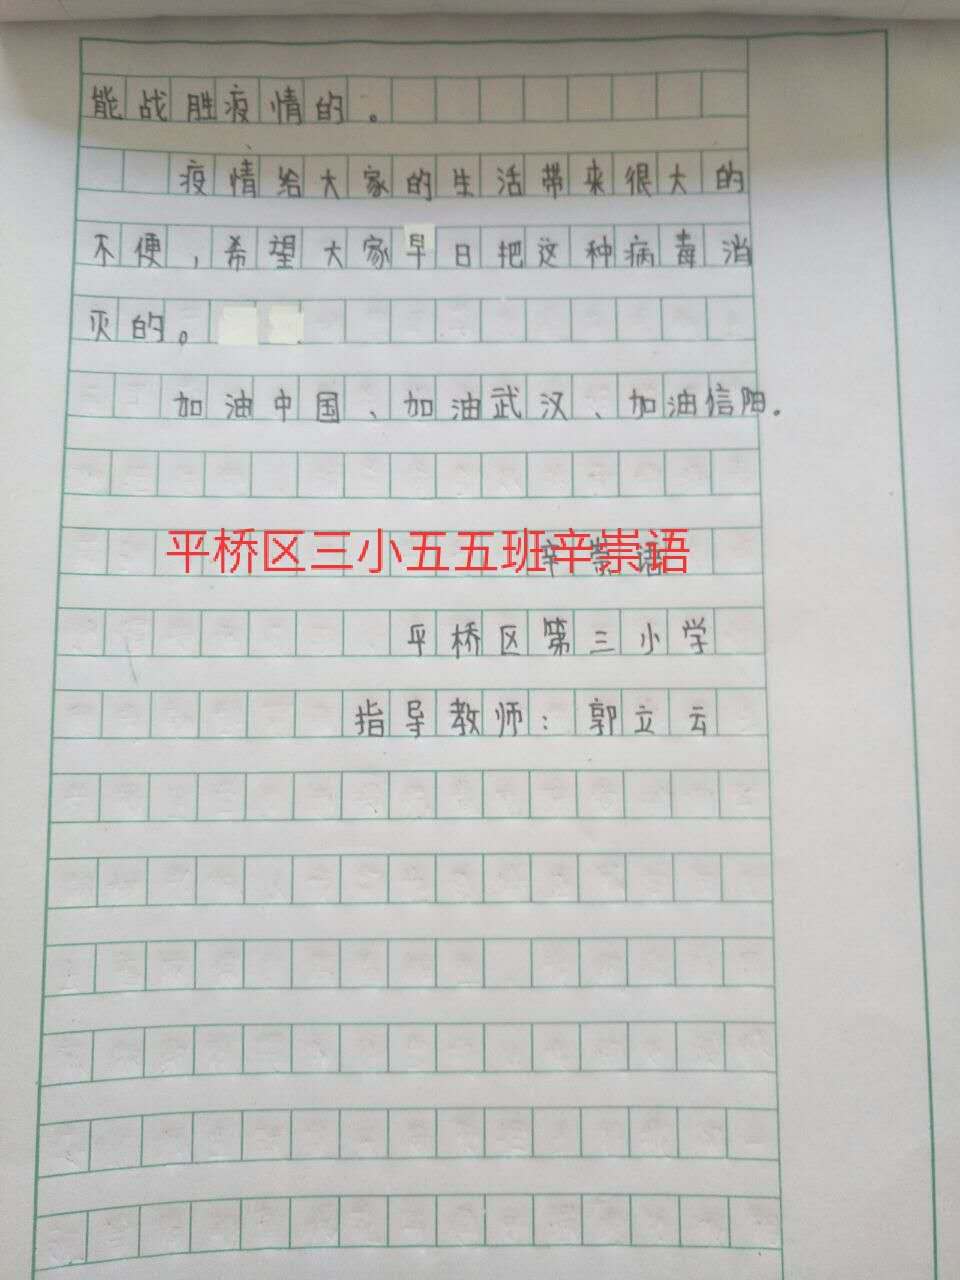 能战胜疫情的。
疫情给大家的生活带来很大的
不便，希望大家早日把这种病毒消
灭的。
加油中国、加油武汉、加油信阳.
平桥区三小五五班辛崇语
辛崇语
平桥区第三小学
指导教师：郭立云